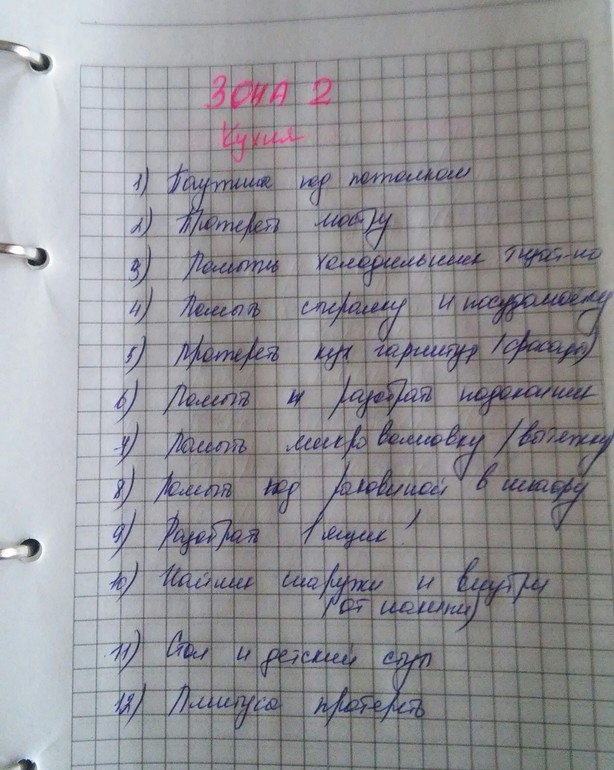 Зона 2
Кухня
1) Паутина под потолком
2) Протереть люстру
3) Помыть холодильник
4) Помыть стиралку и посудомойку
5) Протереть кух гарнитур (фасады)
6) Помыть и разобрать подоконник
7) Помыть микроволновку / вытяжку
8) Помыть под раковиной в шкафу
9) Разобрать 1 ящик!
10) Чайник снаружи и внутри
(от накипи)
11) Стол и детский стул
12) Плинтуса протереть